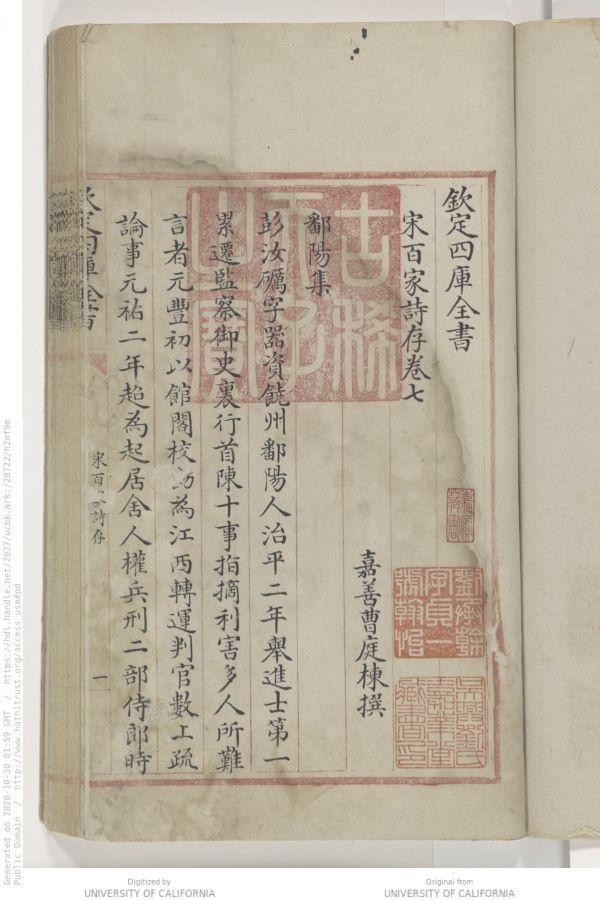 欽定四庫全書
宋百家詩存卷七
嘉善曹庭棟撰
鄱陽集
彭汝礪字器資饒州鄱陽人治平二年舉進士第一
累遷監察御史裏行首陳十事指摘利害多人所難
言者元豐初以館閣校勘為江西轉運判官數上疏
論事元祐二年起為起居舍人權兵刑二部侍郎時
欽定四庫全書
宋百家詩存
一
古稀天子之寶
劉承幹字貞一號翰怡
吳興劉氏嘉業堂藏書印
Generated on 2020-10-30 01:59 GMT / https://hdl.handle.net/2027/ucbk.ark:/28722/h2mf9m
Public Domain / http://www.hathitrust.org/access_use#pd
Digitized by
UNIVERSITY OF CALIFORNIA
Original from
UNIVERSITY OF CALIFORNIA